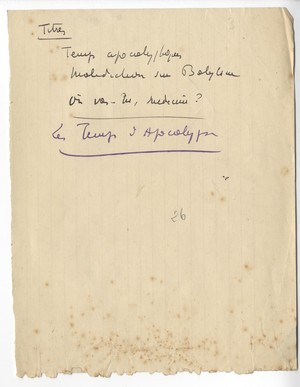 Titres
Temps apocalyptiques
Malédiction sur Babylone
Où vas-tu, médecine ?
Les Temps d'Apocalypse
26